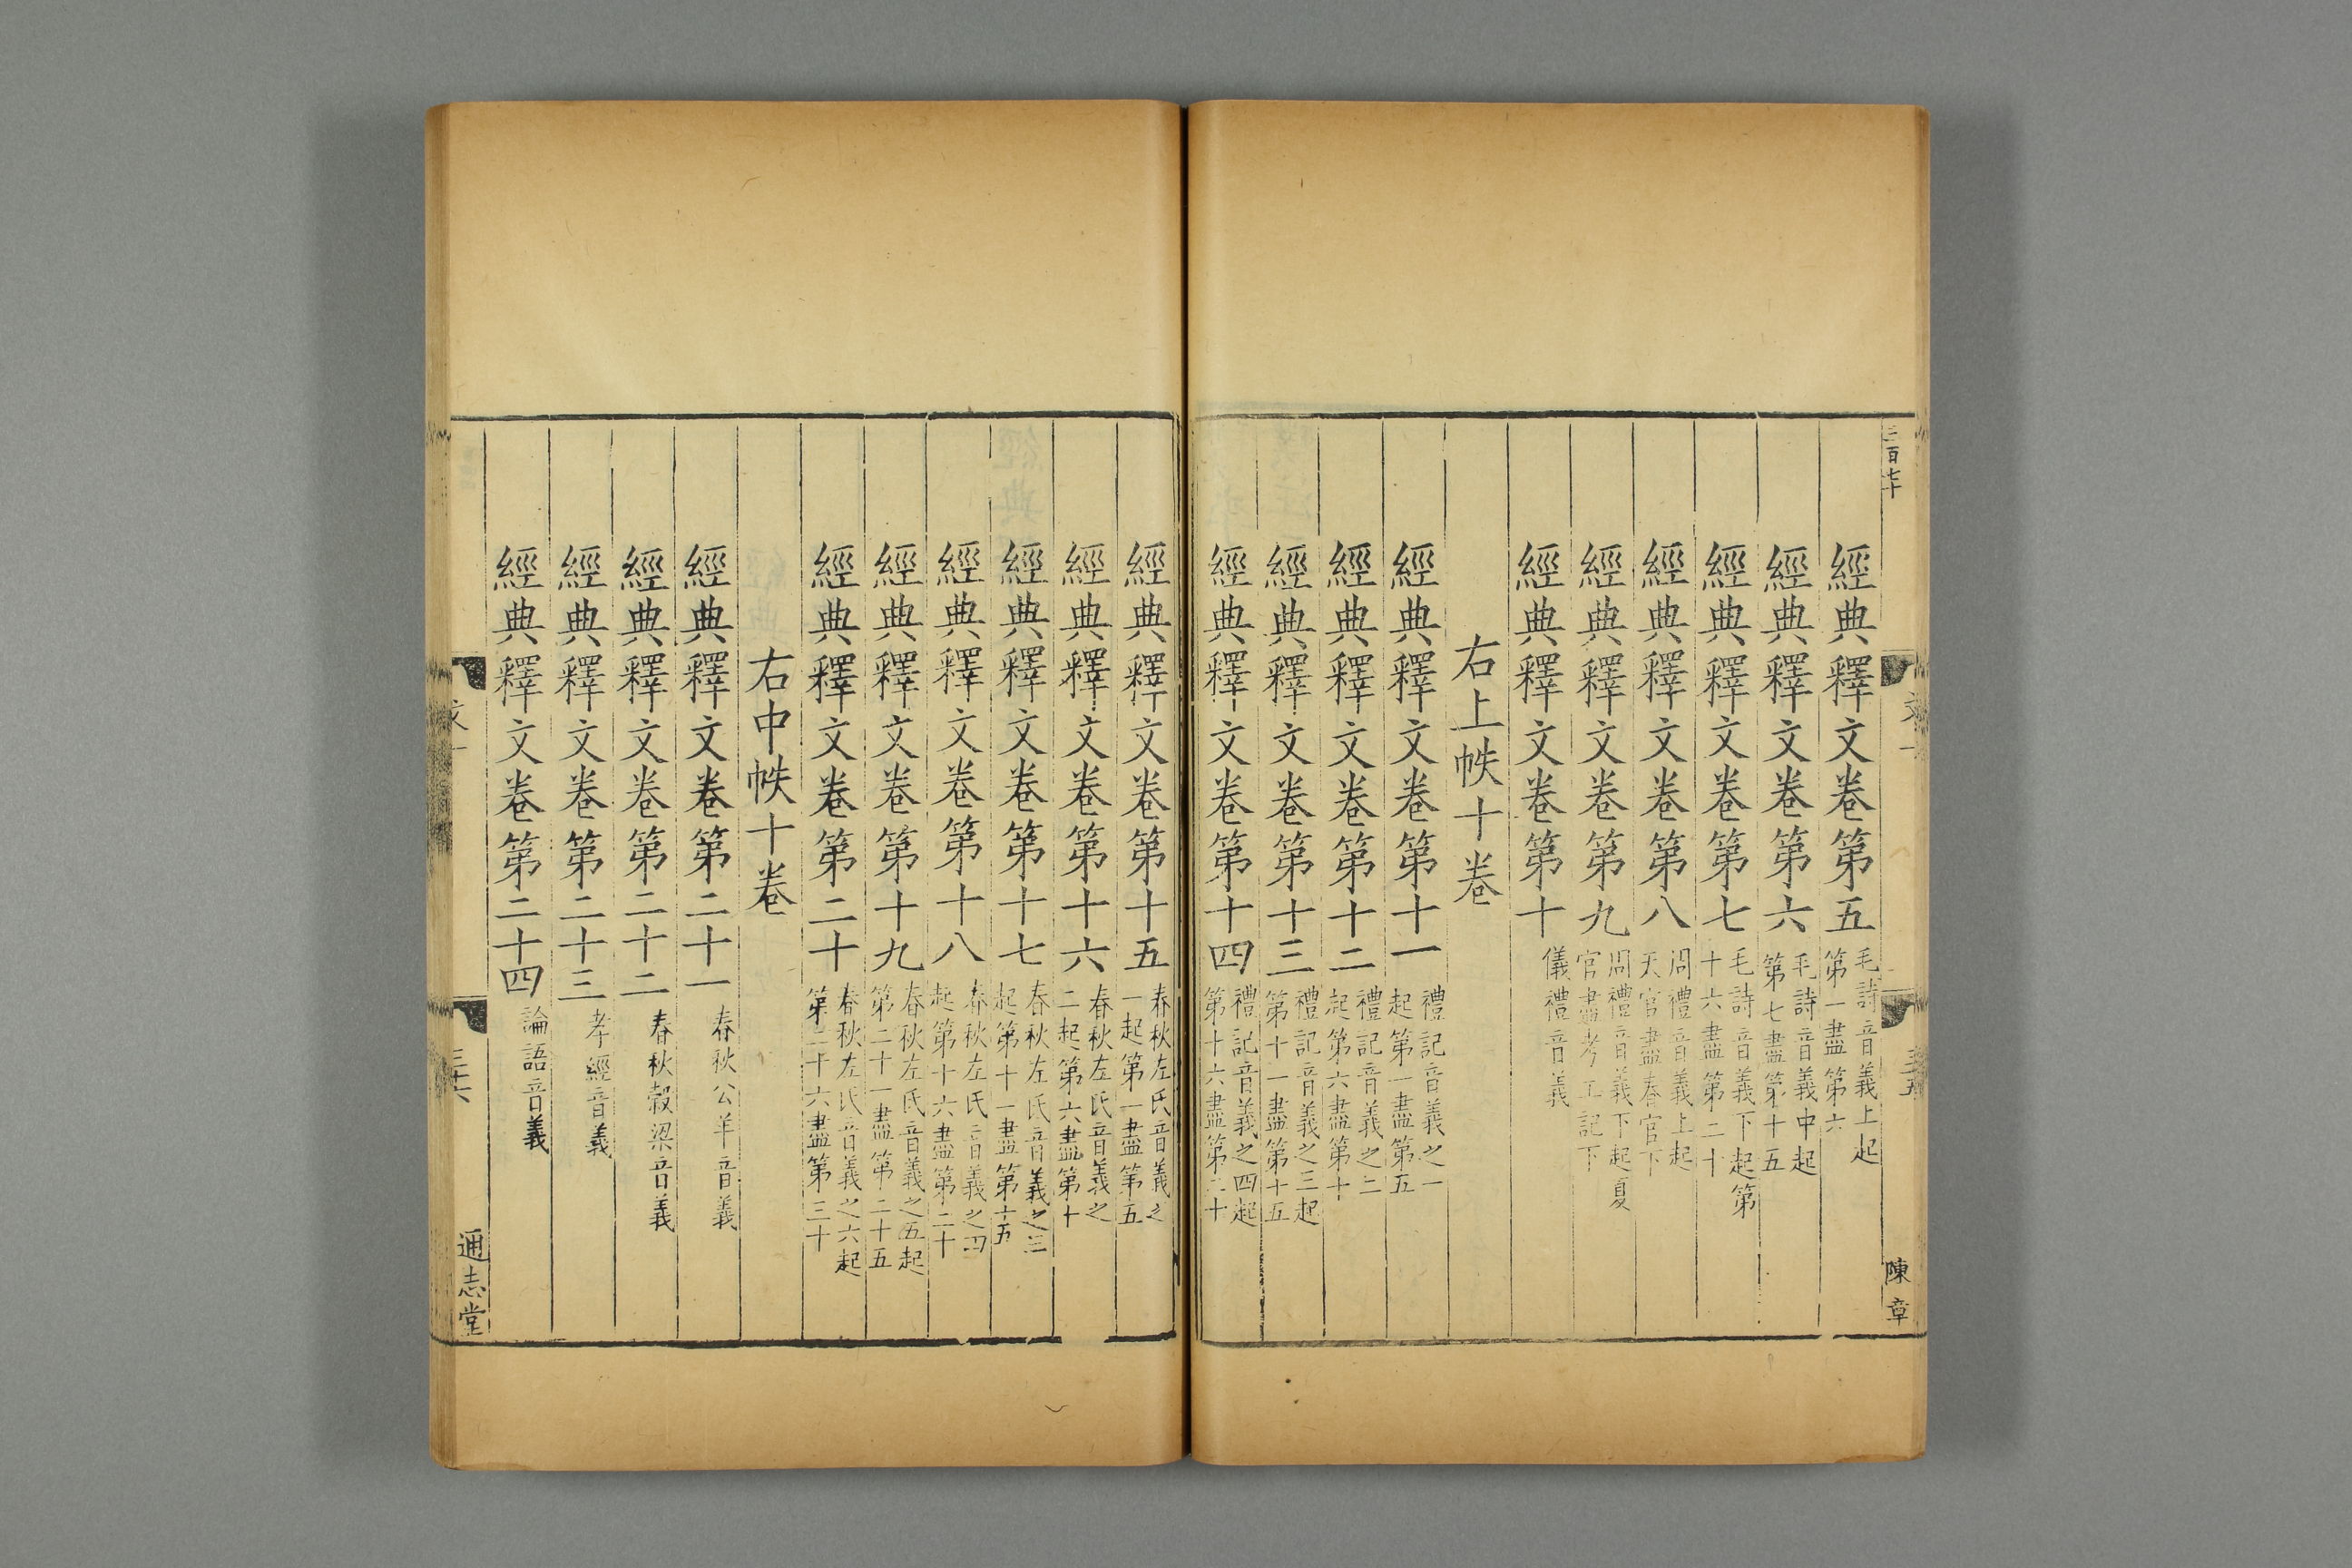 三百七十
陳章
經典釋文卷第五 毛詩音義上起第一盡第六
經典釋文卷第六 毛詩音義中起第七盡第十五
經典釋文卷第七 毛詩音義下起第十六盡第二十
經典釋文卷第八 周禮音義上起天官盡春官下
經典釋文卷第九 周禮音義下起夏官盡考工記下
經典釋文卷第十 儀禮音義
右上帙十卷
經典釋文卷第十一 禮記音義之一起第一盡第五
經典釋文卷第十二 禮記音義之二起第六盡第十
經典釋文卷第十三 禮記音義之三起第十一盡第十五
經典釋文卷第十四 禮記音義之四起第十六盡第二十
經典釋文卷第十五 春秋左氏音義之一起第一盡第五
經典釋文卷第十六 春秋左氏音義之二起第六盡第十
經典釋文卷第十七 春秋左氏音義之三起第十一盡第十五
經典釋文卷第十八 春秋左氏音義之四起第十六盡第二十
經典釋文卷第十九 春秋左氏音義之五起第二十一盡第二十五
經典釋文卷第二十 春秋左氏音義之六起第二十六盡第三十
右中帙十卷
經典釋文卷第二十一 春秋公羊音義
經典釋文卷第二十二 春秋穀梁音義
經典釋文卷第二十三 孝經音義
經典釋文卷第二十四 論語音義
三十六
通志堂